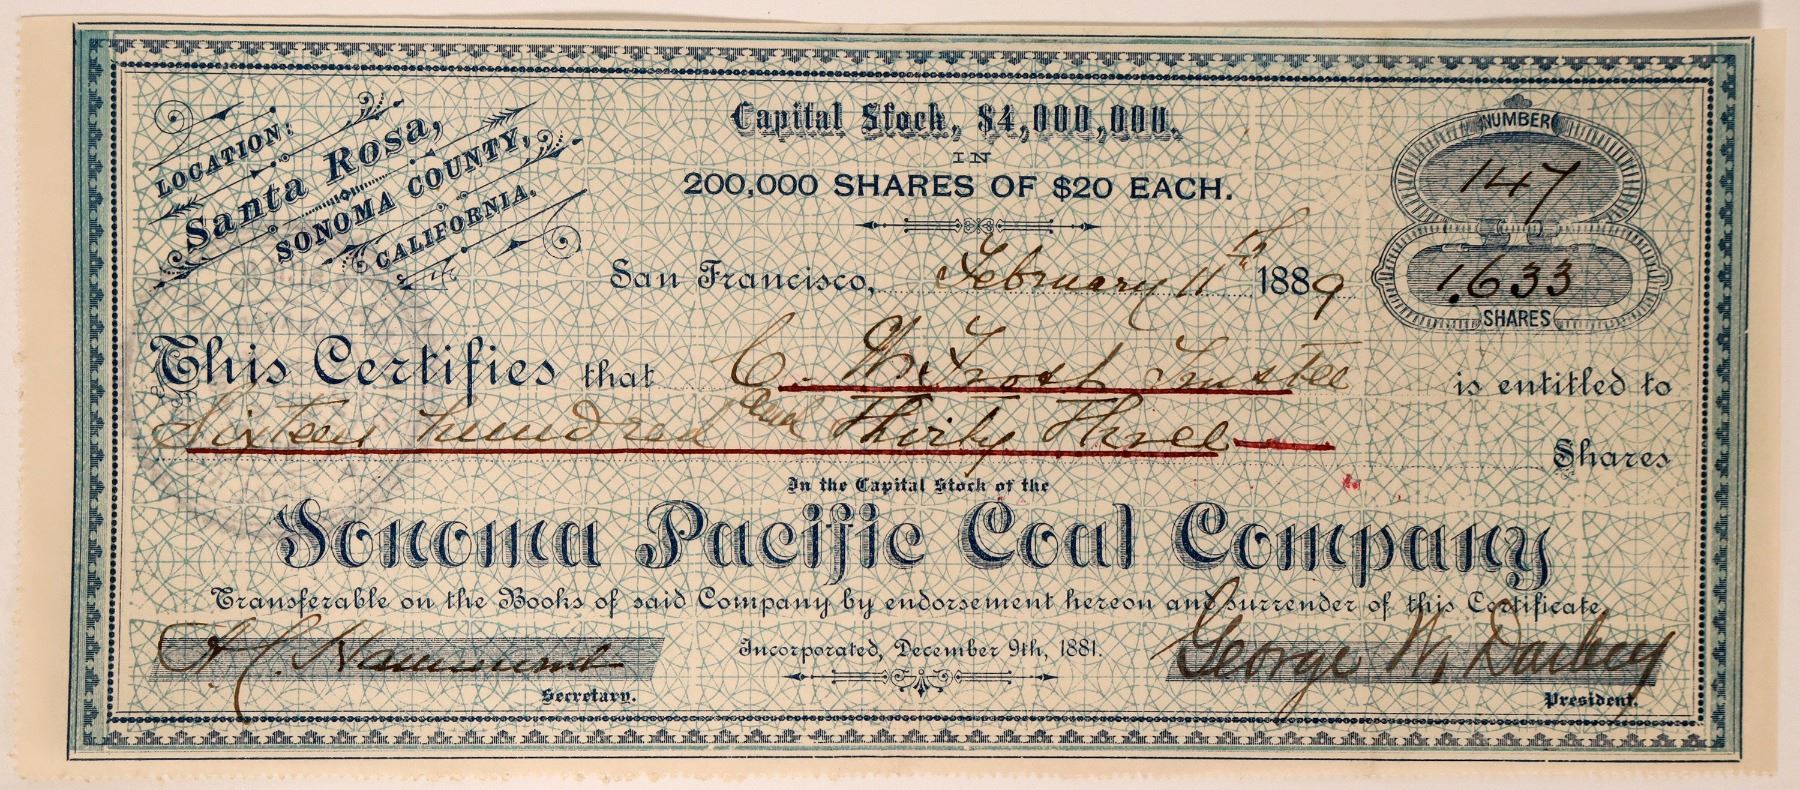 LOCATION:
Santa Rosa,
SONOMA COUNTY,
CALIFORNIA.
Capital Stock, $4,000,000.
IN
200,000 SHARES OF $20 EACH.
NUMBER
147
1,633
SHARES
San Francisco, February 11th 1889
This Certifies that C. W. Frost Trustee is entitled to
Sixteen hundred and Thirty Three Shares
In the Capital Stock of the
Sonoma Pacific Coal Company
Transferable on the Books of said Company by endorsement hereon and surrender of this Certificate
A. C. Hammond
Secretary.
Incorporated, December 9th, 1881.
George W. Darbey
President.